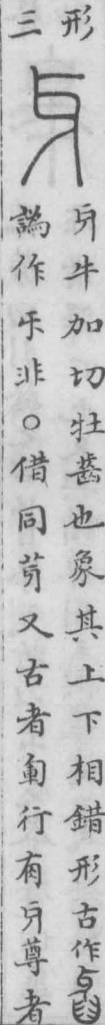 形
三
牙
牙牛加切牡齒也象其上下相錯形古作
譌作非○借同芽又古者軍行有牙尊者